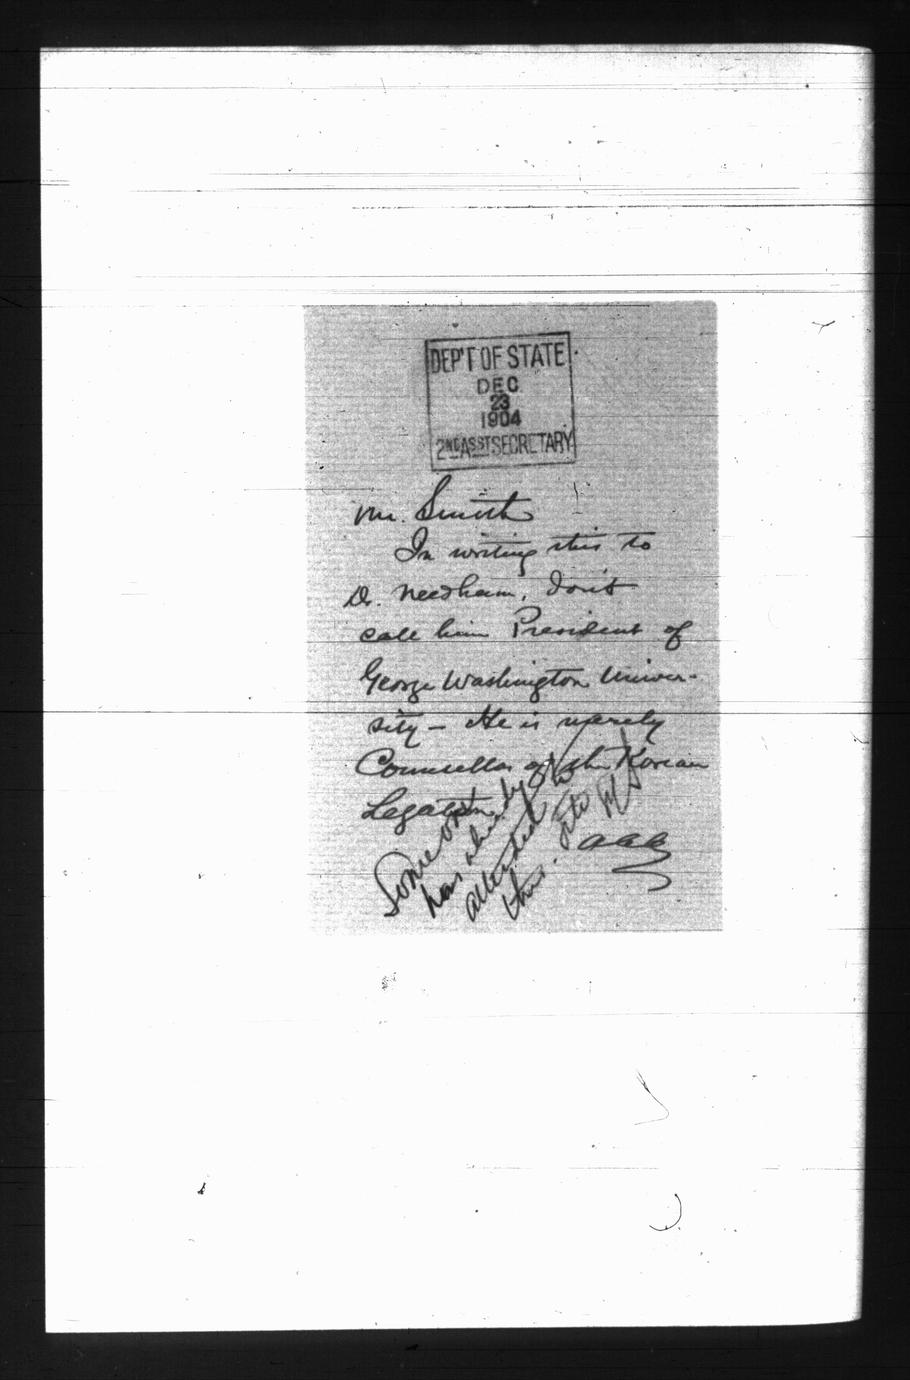 DEP'T OF STATE
DEC
23
1904
2ND ASST SECRETARY
Mr. Smith
In writing this to
Dr. Needham, don't
call him President of
George Washington Univer-
sity – He is merely
Councellor of the Korean
Legation
AAA
Some one
has already
attended to
this.